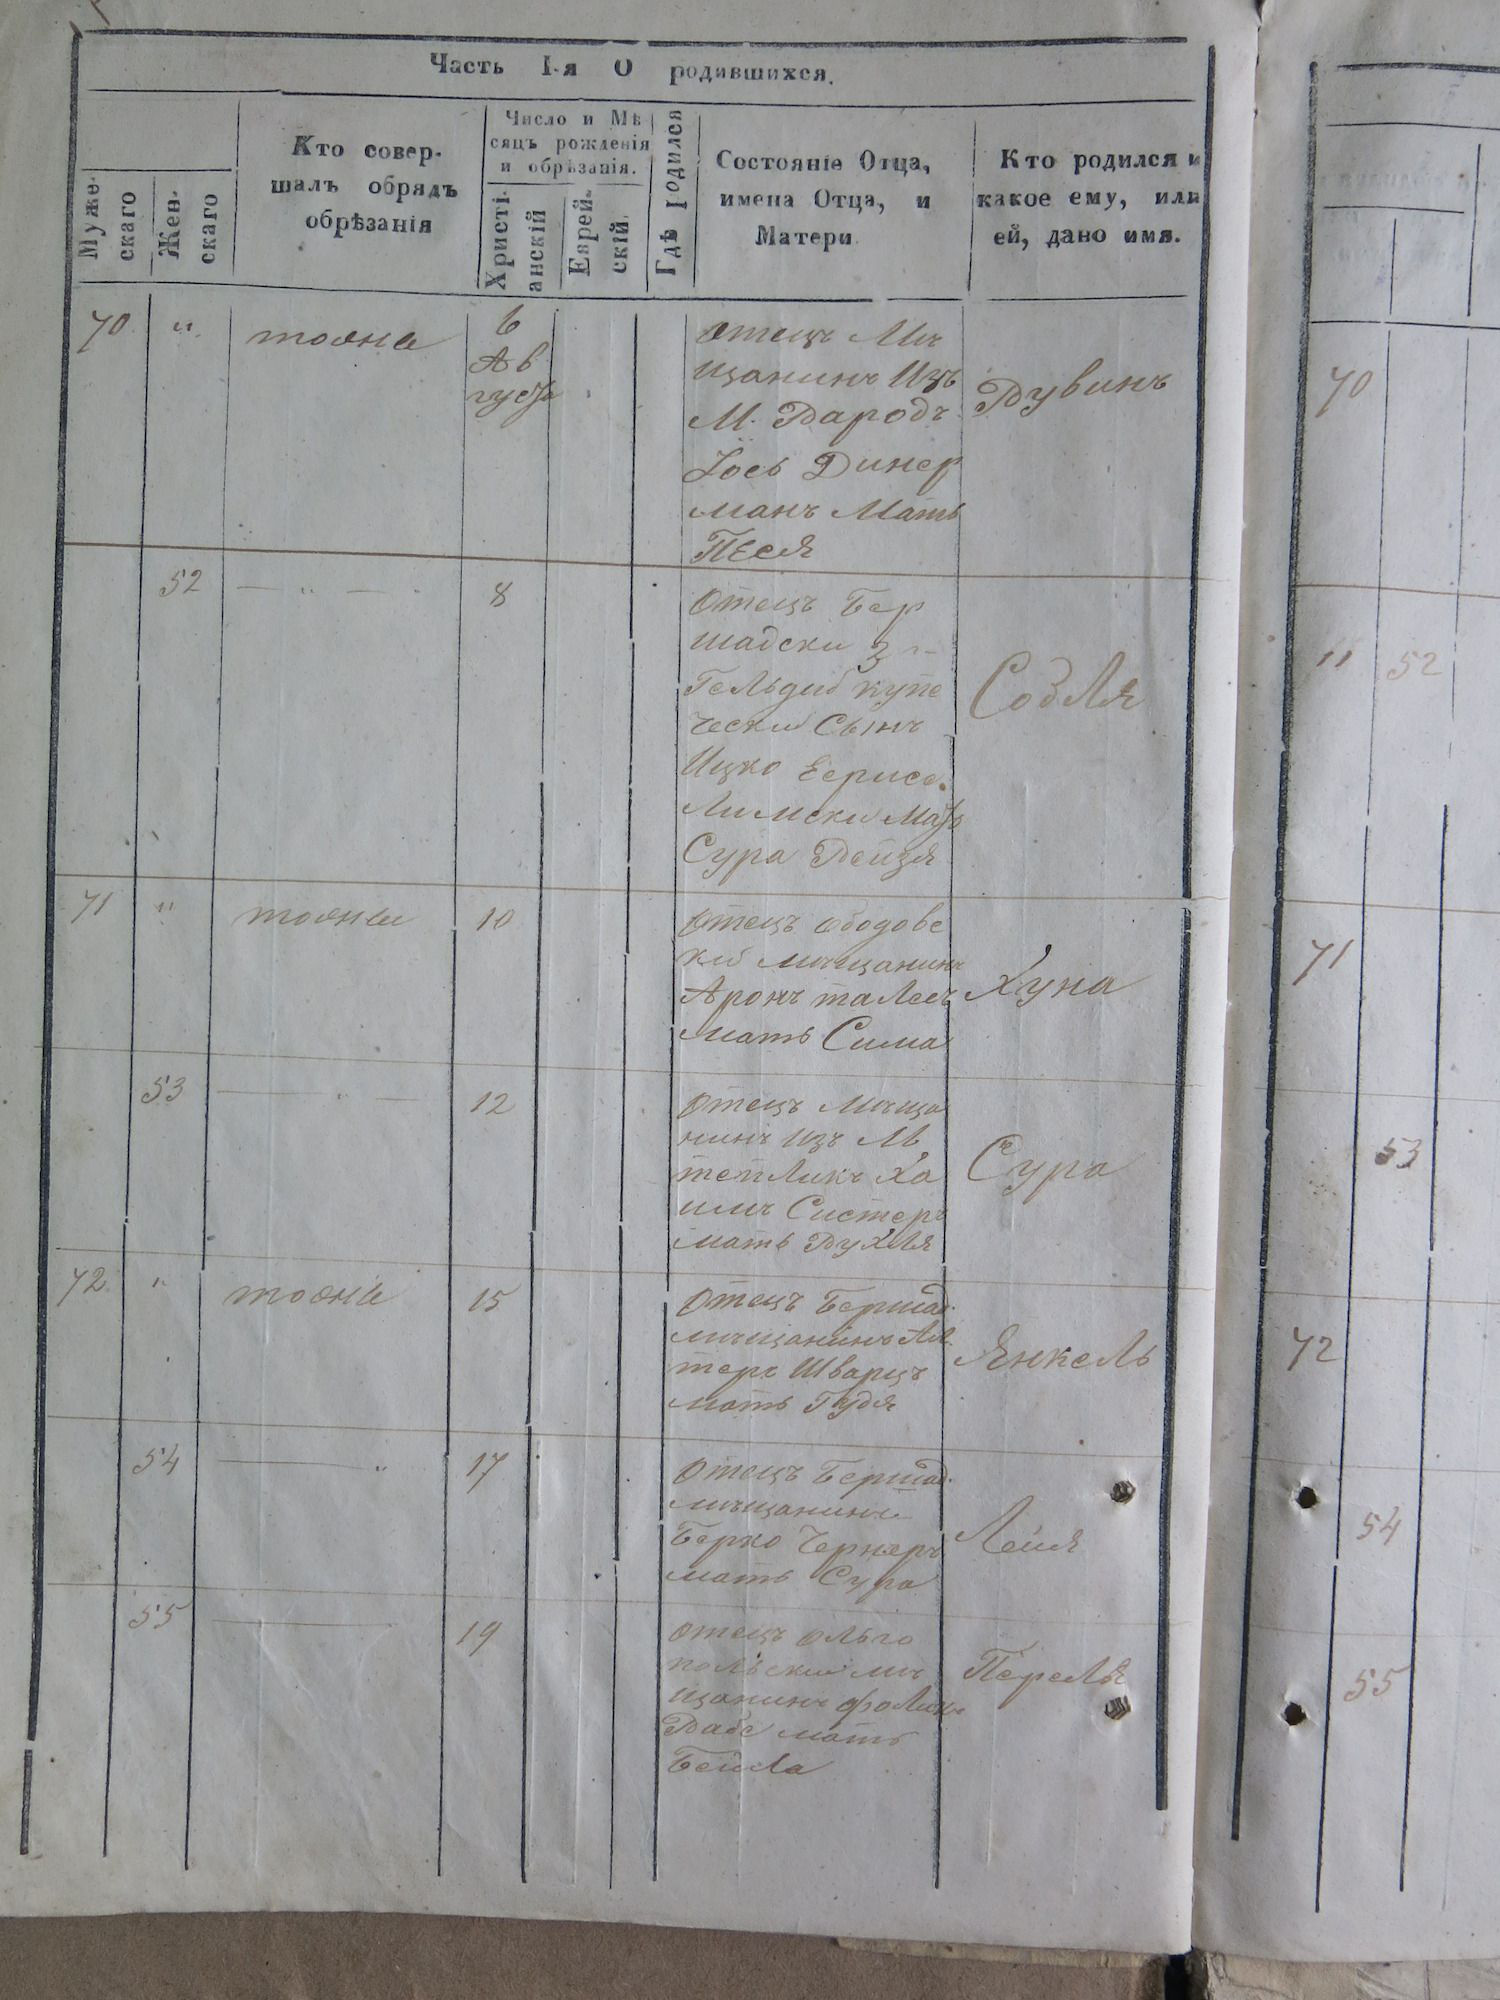 Часть I-я О родившихся.
Муже-
скаго
Жен-
скаго
Кто совер-
шалъ обрядъ
обрѣзанія
Число и Мѣ
сяцъ рожденія
и обрѣзанія.
Христі-
анскій
Еврей-
скій
Гдѣ родился
Состояніе Отца,
имена Отца, и
Матери
Кто родился и
какое ему, или
ей, дано имя.
70 " тоже 6
Ав
густа
Отецъ Мѣ
щанинъ Изъ
М.
Іось Динер
манъ Мать
Песя
Рувинъ
52 — " — 8
Отецъ Бер
шадски 3
Гельдій купе
чески Сынъ
Ицко Ерисо
лимски Мать
Сура Рейзя
71 " 10
Отецъ Ободовс
кій мѣщанинъ
Аронъ
мать Сима
Хуна
53 — " — 12
Отецъ мѣща
нинъ изъ М
Тепликъ Ха
имъ Систеръ
мать Рухля
Сура
72 " 15
Отецъ Бершад.
мѣщанинъ Ал
теръ Шварцъ
мать Гудя
Янкель
54 — " 17
Отецъ Бершад.
мѣщанинъ
Берко Чернеръ
мать Сура
Лейя
55 — 19
Отецъ Ольго
польски мѣ
щанинъ Фоликъ
мать
Бейла
Переля
70
" 52
71
53
72
54
55